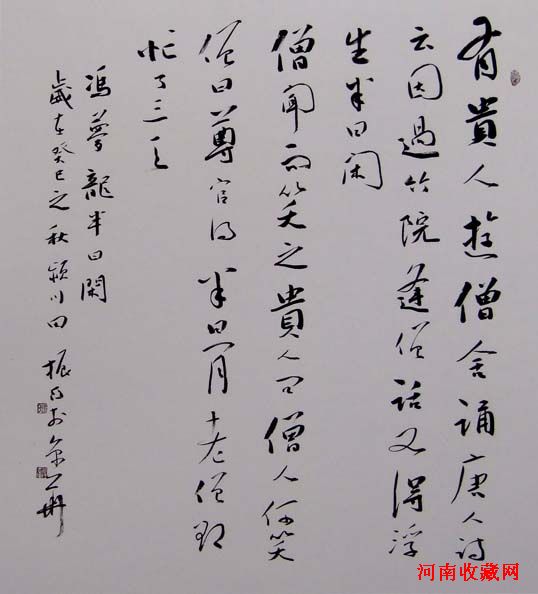 有貴人遊僧舍誦唐人詩
云因過竹院逢僧話又得浮
生半日闲
僧闻而笑之貴人曰僧人何笑
僧曰尊官得半日闲老僧却
忙了三天
馮夢龍半日閑
歲在癸巳之秋潁川田振
河南收藏网